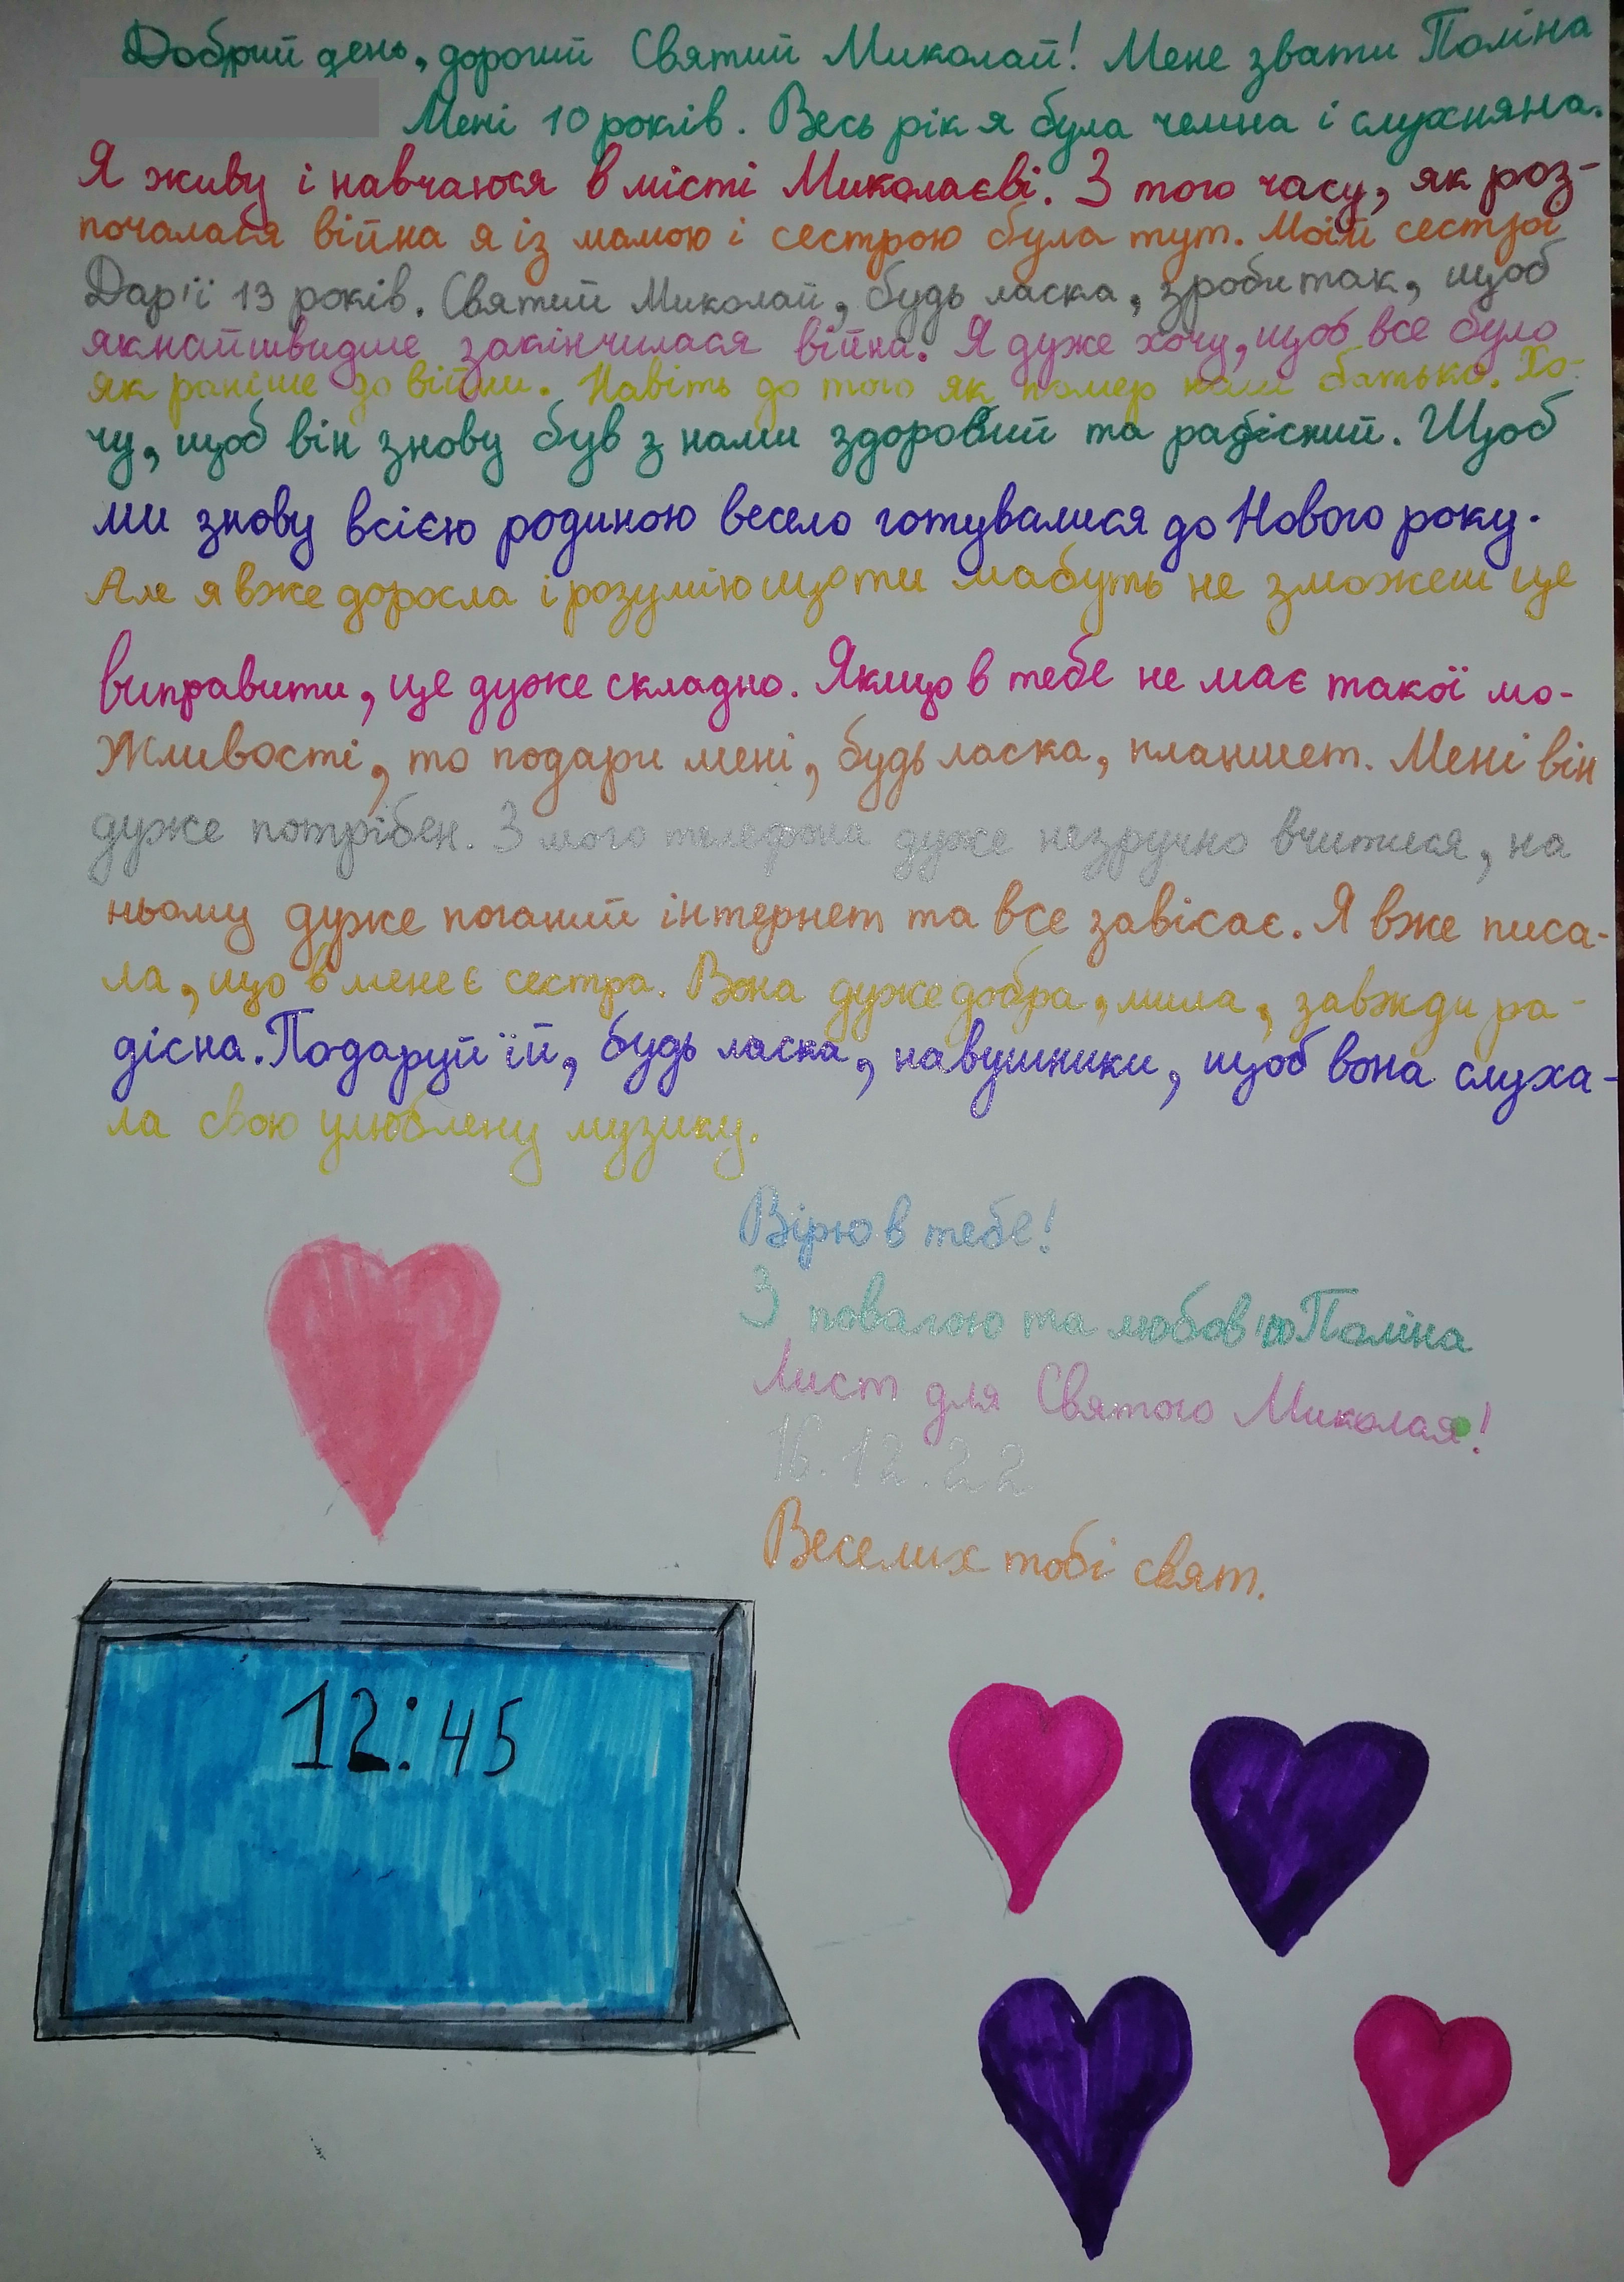 Добрий день, дорогий Святий Миколай! Мене звати Поліна
Мені 10 років. Весь рік я була чемна і слухняна.
Я живу і навчаюся в місті Миколаєві. З того часу, як роз-
почалася війна я із мамою і сестрою була тут. Моїй сестрі
Дар'ї 13 років. Святий Миколай, будь ласка, зроби так, щоб
якнайшвидше закінчилася війна. Я дуже хочу, щоб все було
як раніше до війни. Навіть до того як помер наш батько. Хо-
чу, щоб він знову був з нами здоровий та радісний. Щоб
ми знову всією родиною весело готувалися до Нового року.
Але я вже доросла і розумію що ти мабуть не зможеш це
виправити, це дуже складно. Якщо в тебе не має такої мо-
жливості, то подари мені, будь ласка, планшет. Мені він
дуже потрібен. З мого телефона дуже незручно вчитися, на
ньому дуже поганий інтернет та все завісає. Я вже писа-
ла, що в мене є сестра. Вона дуже добра, мила, завжди ра-
дісна. Подаруй їй, будь ласка, навушники, щоб вона слуха-
ла свою улюблену музику.
Вірю в тебе!
З повагою та любов'ю Поліна
Лист для Святого Миколая!
16.12.22
Веселих тобі свят.
12:45